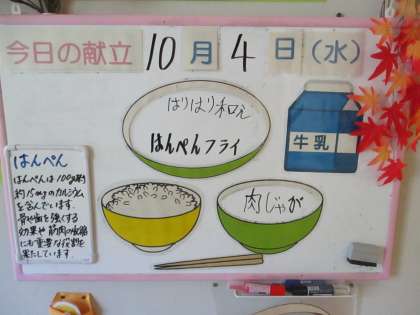 今日の献立 10月4日(水)
はりはり和え
はんぺんフライ
牛乳
肉じゃが
はんぺん
はんぺんは100g約
約15mgのカルシウム
を含んでいます。
骨や歯を強くする
効果や筋肉の収縮
にも重要な役割を
果たしています。